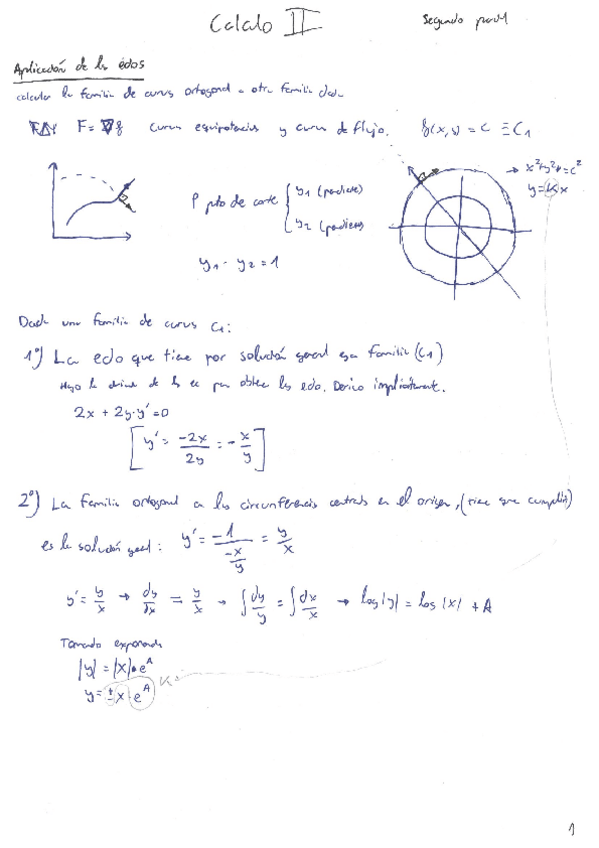 Calculo II
Segundo parcial
Aplicación de las edos
calcular la familia de curvas ortogonal a otra familia dada
F=∇f curvas equipotenciales y curvas de flujo. f(x,y) = C ≡ C₁
→ x²+y²=c²
y=Kx
P pto de corte { y₁ (pendiente)
y₂ (pendiente)
y₁ - y₂ = 1
Dada una familia de curvas C₁:
1º) La edo que tiene por solución general esa familia (C₁)
Hago la deriva de la ec para obtener las edo. Derivo implícitamente.
2x + 2y·y'=0
[y' = -2x/2y = -x/y]
2º) La familia ortogonal a las circunferencias centradas en el origen, (tiene que cumplir)
es la solución general: y' = -1/(-x/y) = y/x
y' = y/x → dy/dx = y/x → ∫dy/y = ∫dx/x → log|y| = log|x| + A
Tomando exponencial
|y| = |x|·e^A
y = ± x·e^A K
1